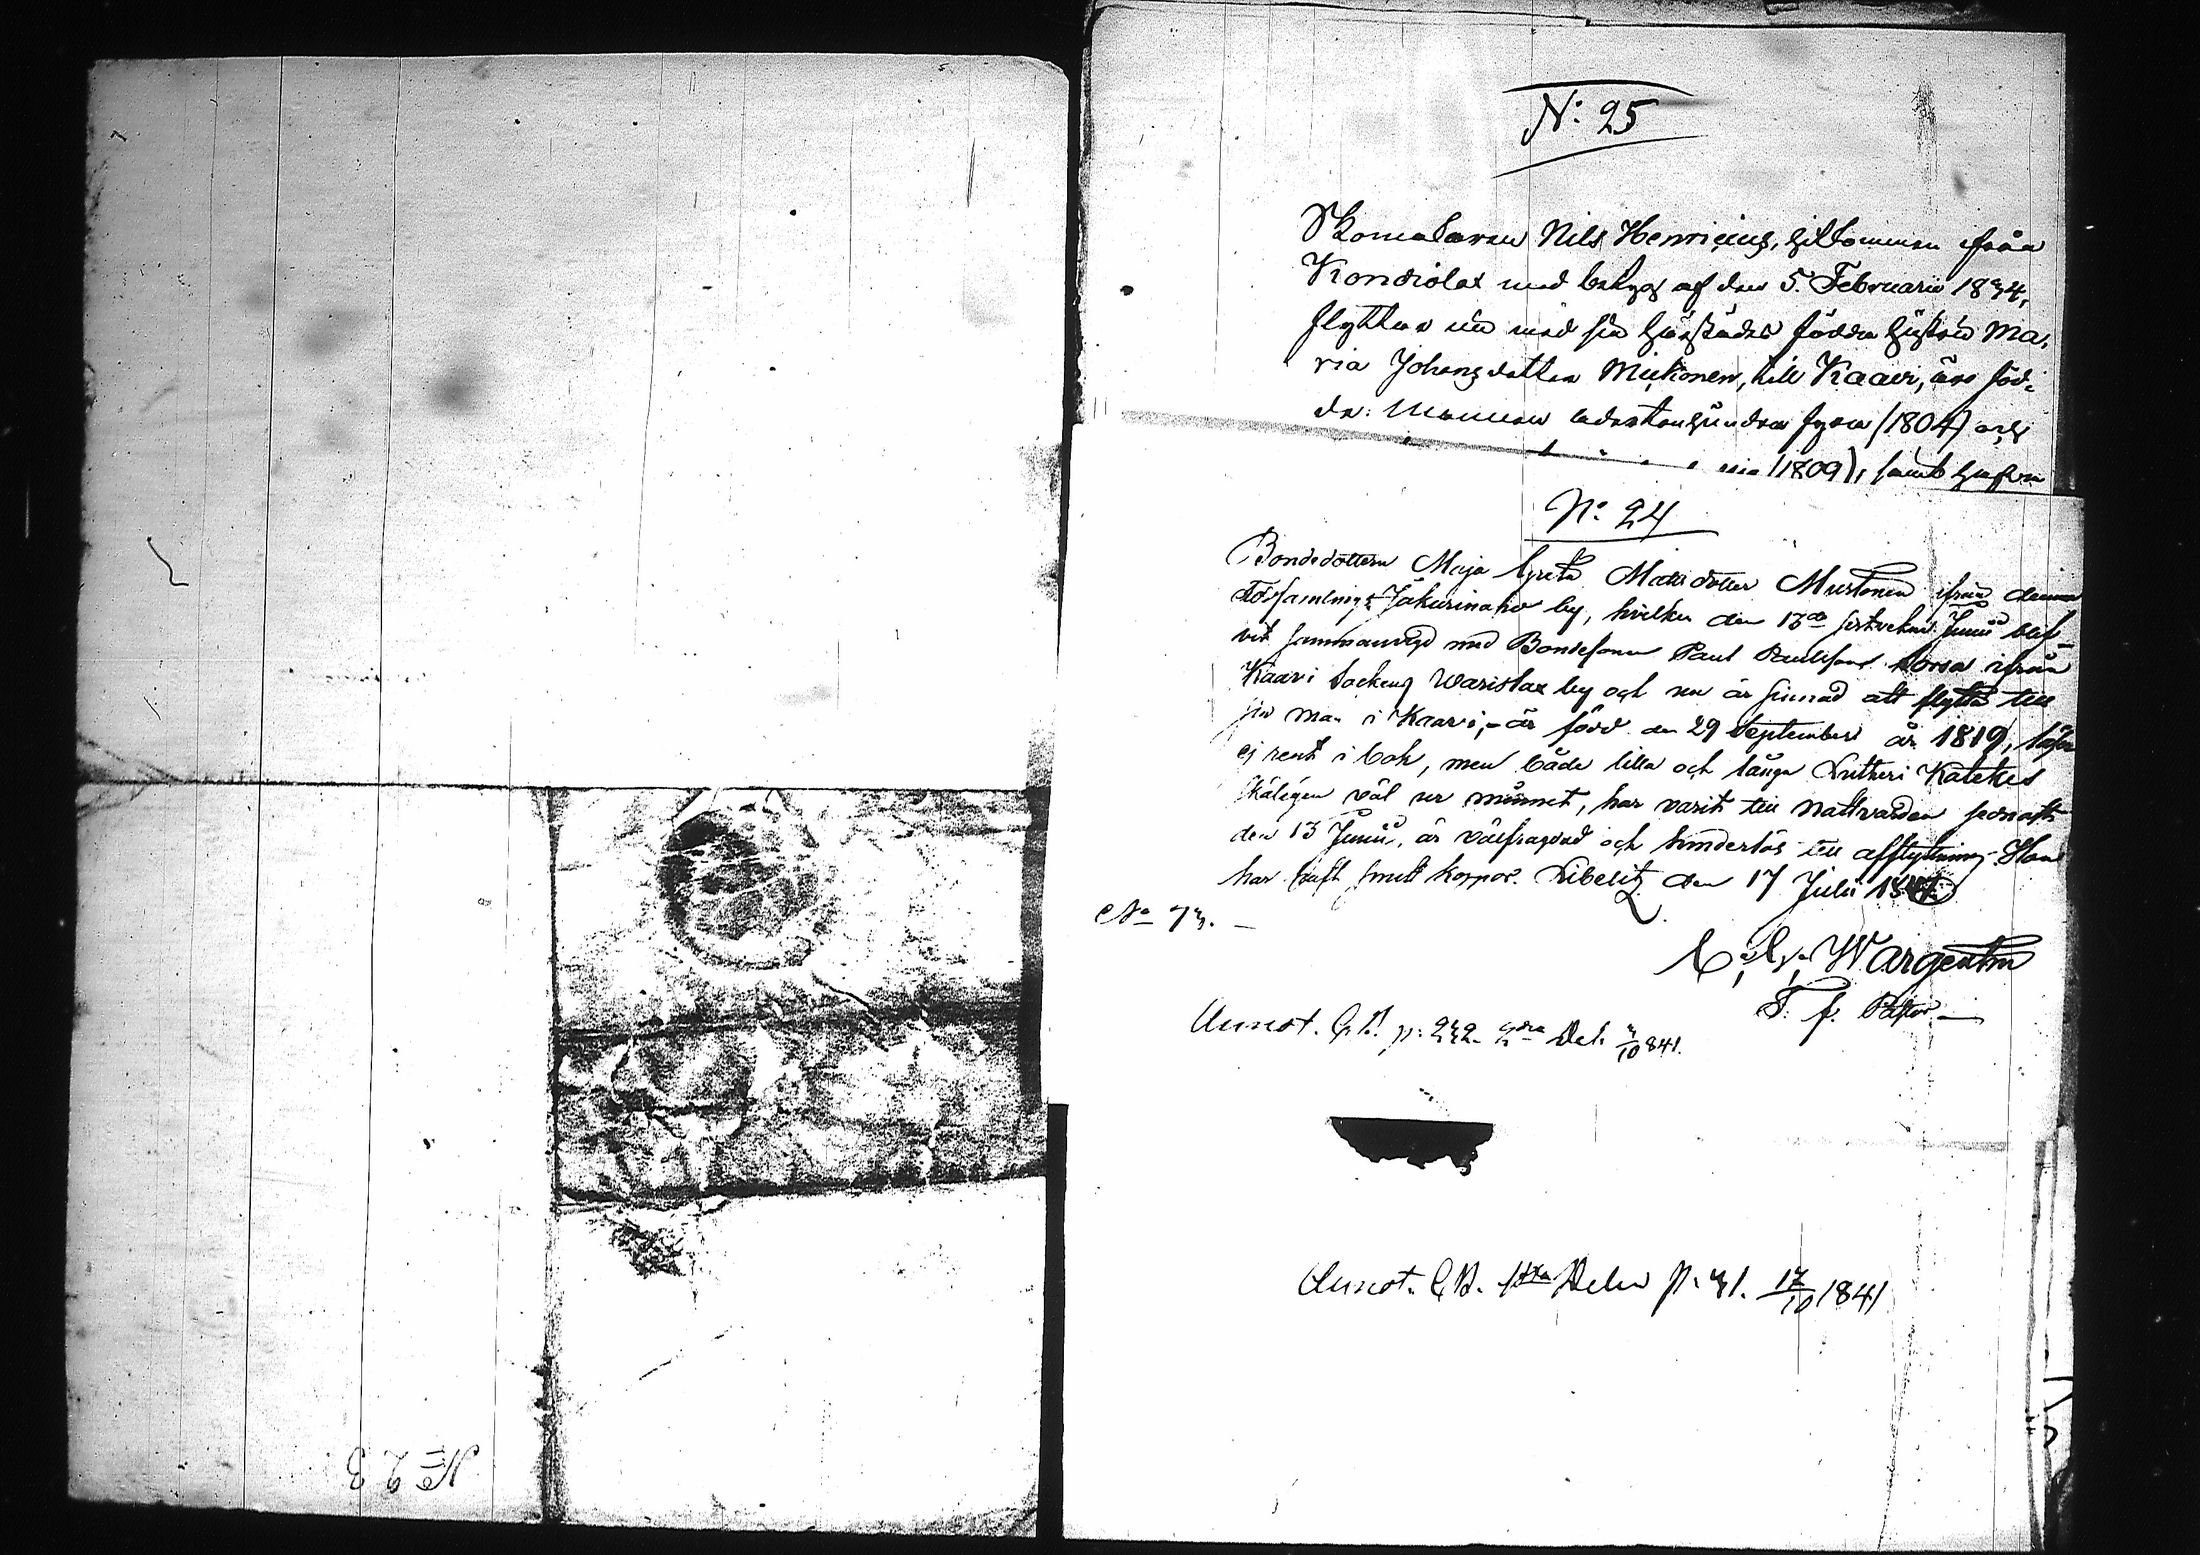 N: 25
Skomakaren Nils Henricius, hitkommen ifrån
Kondiolax med betyg af den 5. Februarii 1834,
flyttar nu med sin härstädes födda hustru Ma-
ria Johansdotter Miikonen, till Kaavi, äro föd-
da: Mannen adertonhundra fyra (1804) och
nio (1809), samt hustrun
N: 24
Bondedottern Maja Greta Matsdotter Mustonen ifrån denna
Församlings Jakurinaho by, hvilken den 13de sistvekne Junii blif-
vit sammanvigd med Bondesonen Paul Paulsson ifrån
Kaavi Sockens Warislax by och nu är sinnad att flytta till
sin man i Kaavi, är född den 29 September år 1819, läser
ej rent i bok, men både lilla och långa Lutheri Katekes
skäligen väl ur minnet, har varit till Nattvarden sednast
den 13 Junii, är välfrägdad och hinderlös till afflyttning. Hon
har haft koppor. Libelitz den 17 Julii 1841
No 73.
Wargentin
T. f. Pastor
Annot. p: 232. 2dra Del. 3/10 841.
Annot. 1sta Delen p: 31. 17/10 1841
No 23